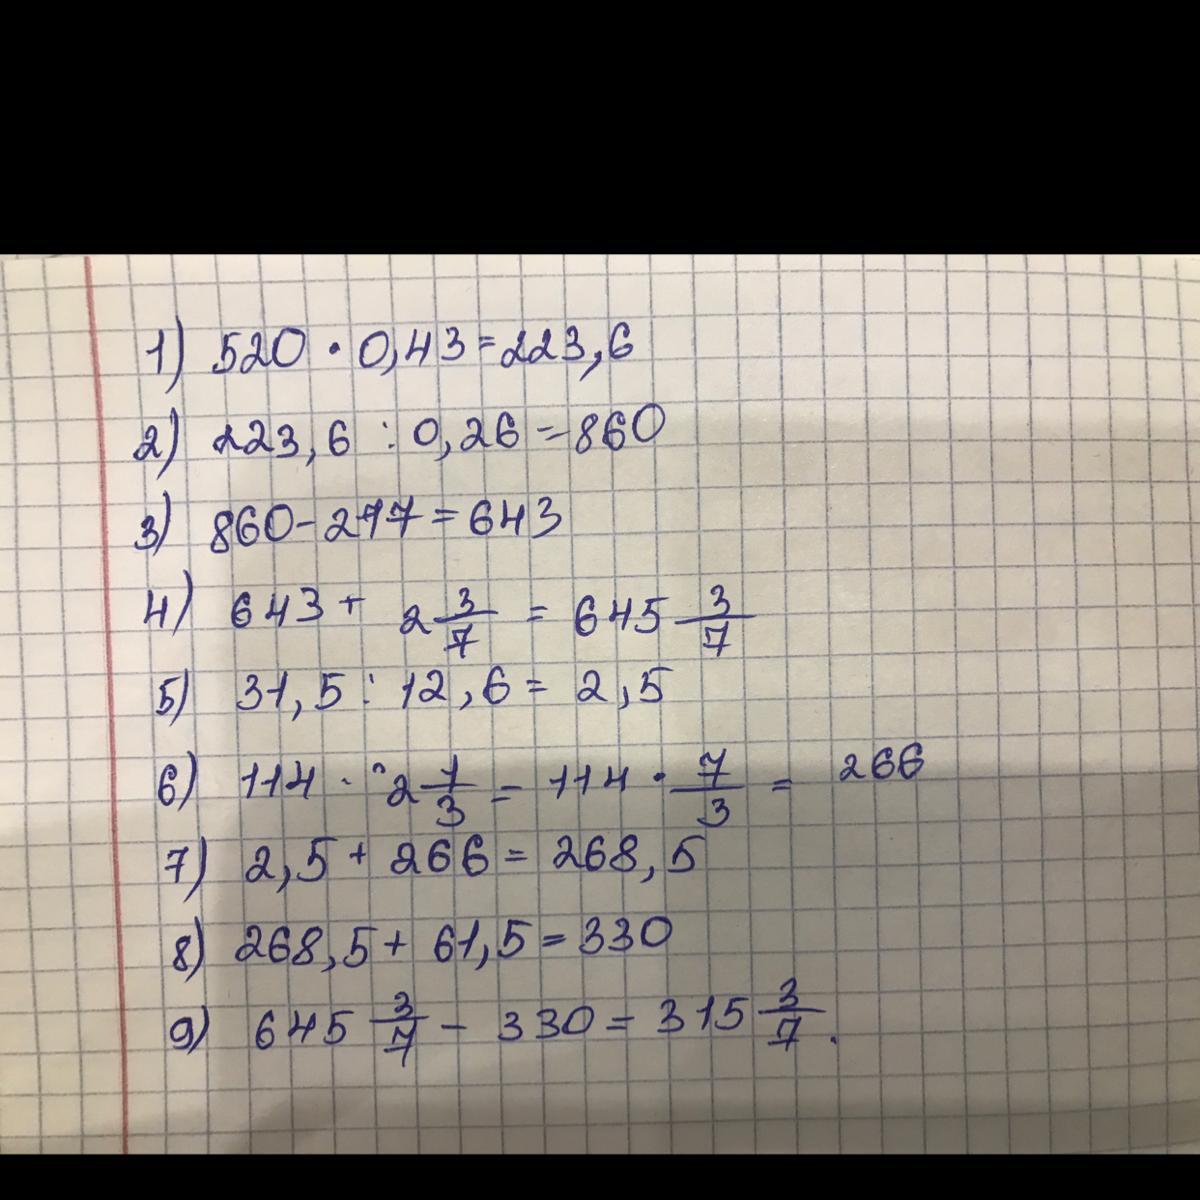 1) 520 · 0,43 = 223,6
2) 223,6 : 0,26 = 860
3) 860 - 217 = 643
4) 643 + 2 3/7 = 645 3/7
5) 31,5 : 12,6 = 2,5
6) 114 · 2 1/3 = 114 · 7/3 = 266
7) 2,5 + 266 = 268,5
8) 268,5 + 61,5 = 330
9) 645 3/7 - 330 = 315 3/7.